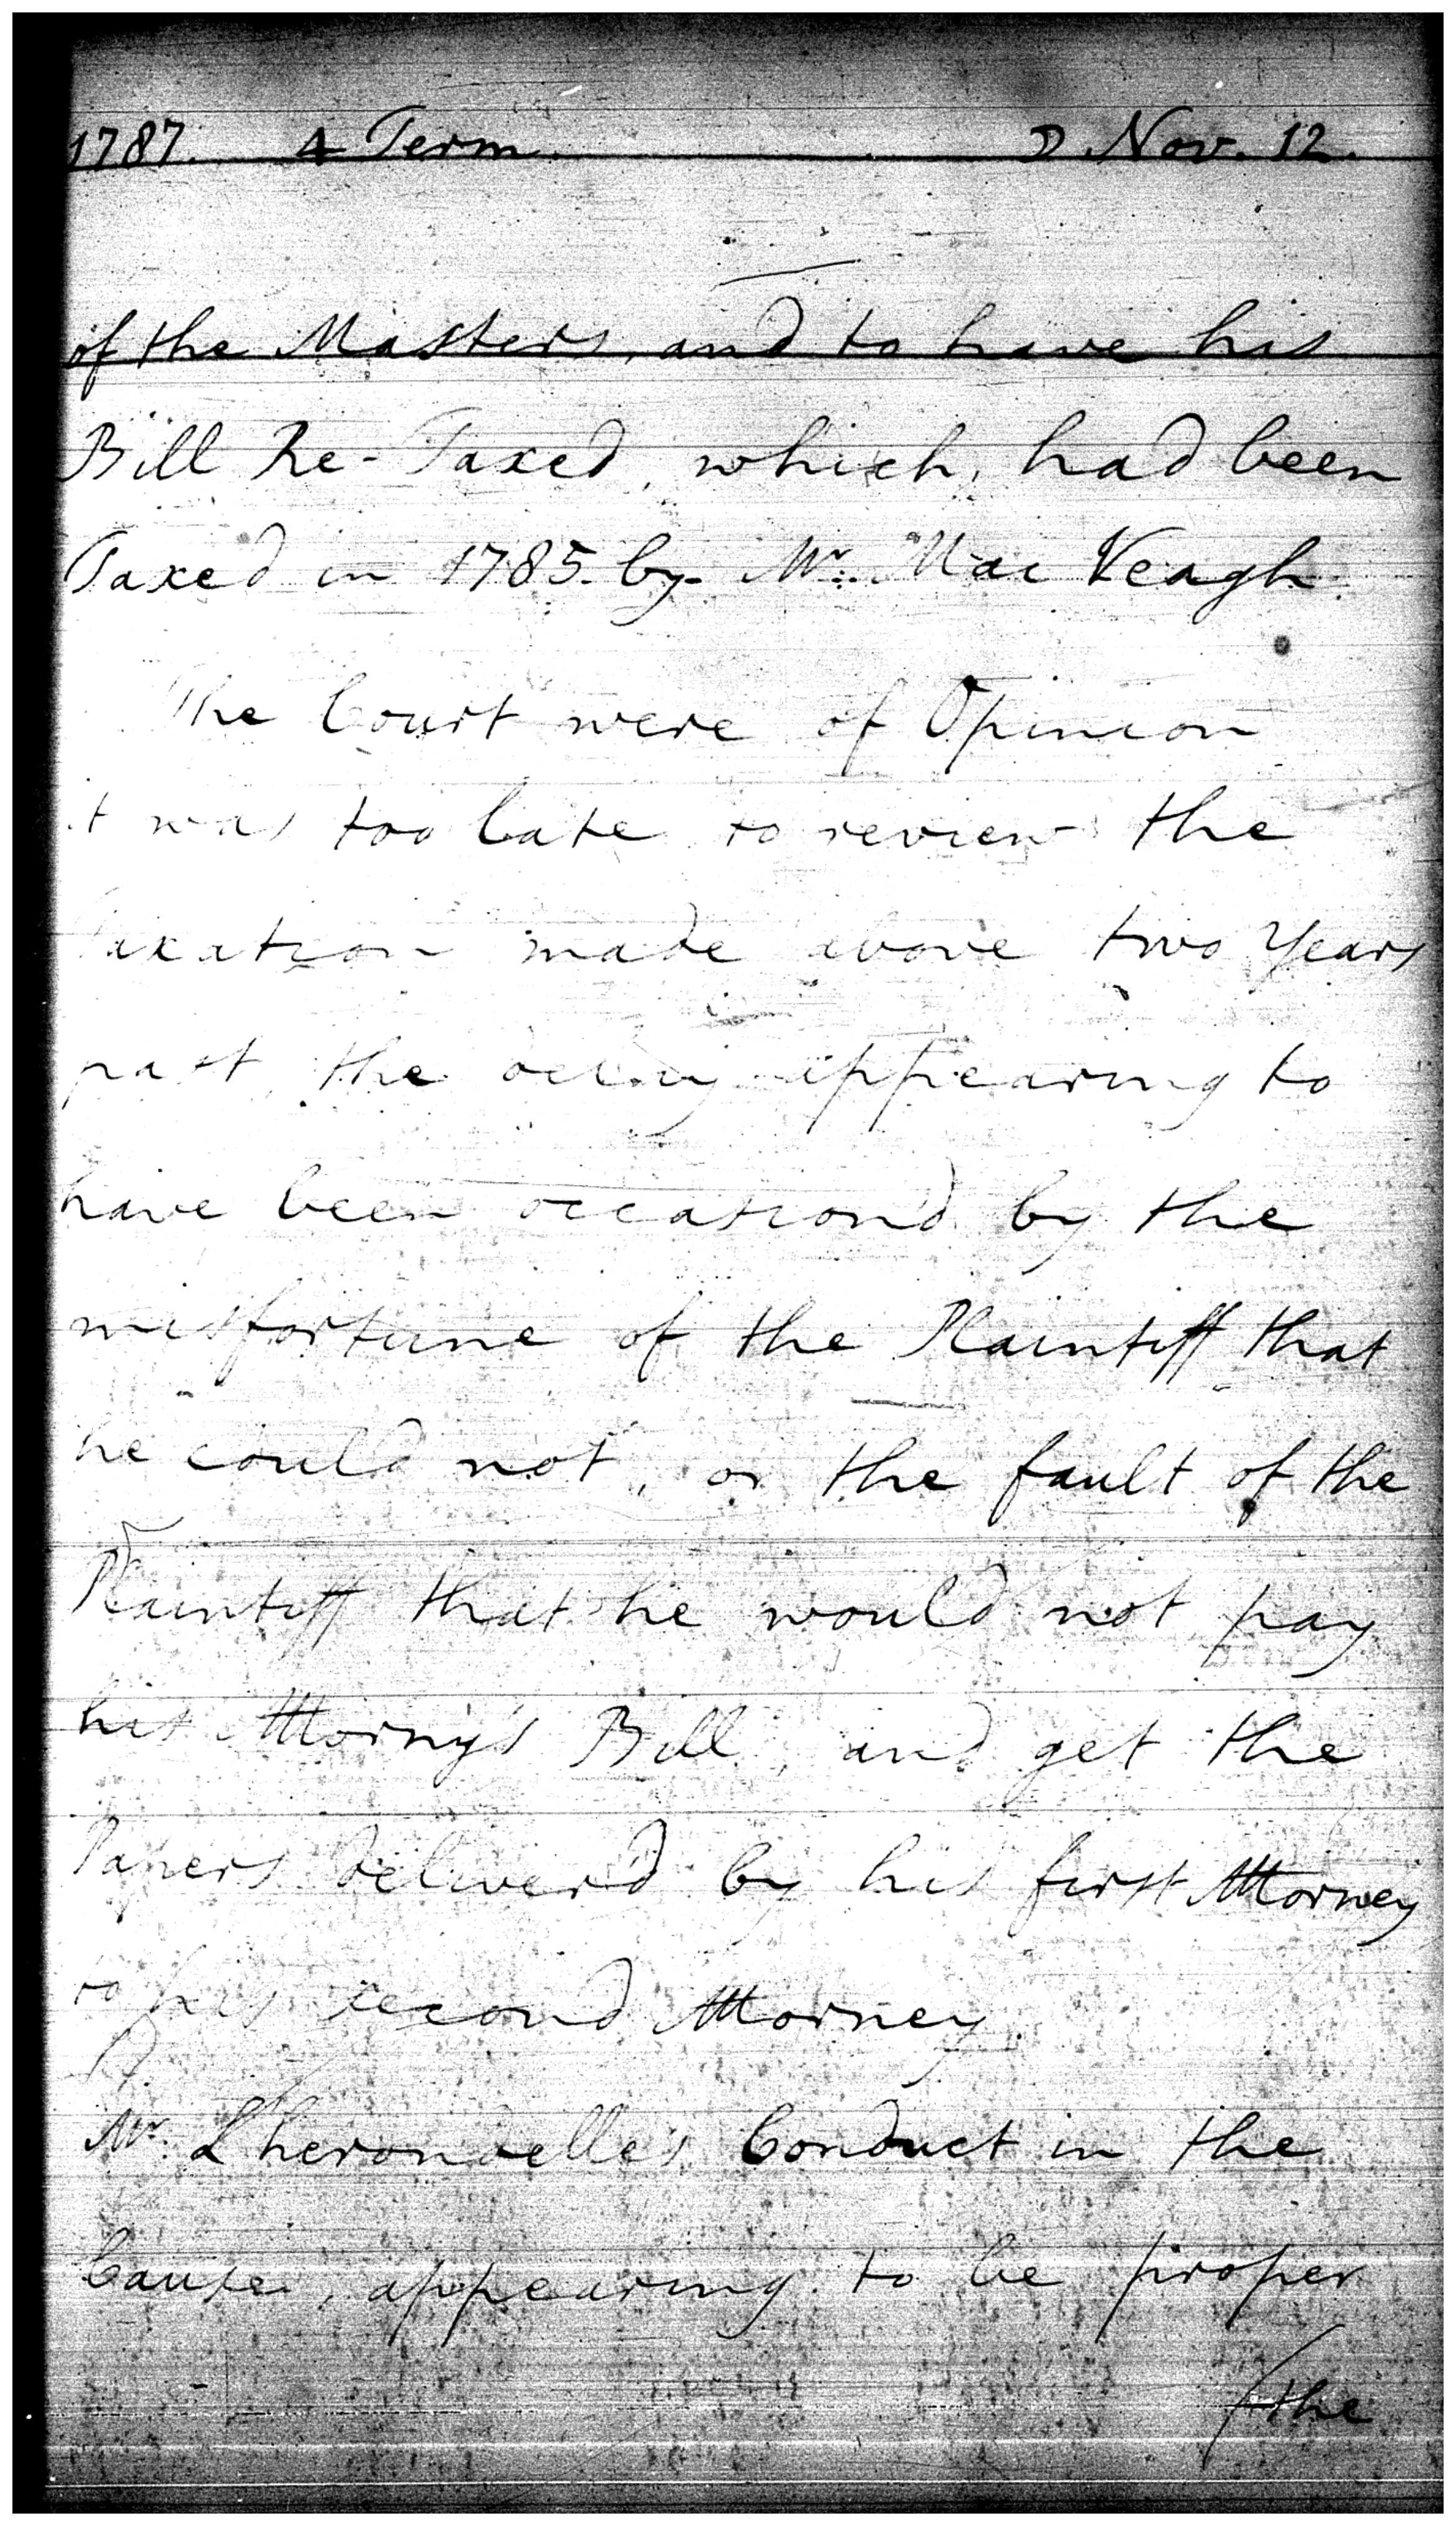 1787. 4 Term. ☽ Nov. 12.
of the Masters, and to have his
Bill Re-Taxed, which, had been
Taxed in 1785. by Mr. Mac Veagh.
The Court were of Opinion
it was too late to review the
Taxation made above two Years
past, the delay appearing to
have been occasion'd by the
misfortune of the Plaintiff that
he could not, or the fault of the
Plaintiff that he would not pay
his Attorny's Bill, and get the
Papers deliver'd by his first Attorney
to his second Attorney.
Mr. Lherondelle's Conduct in the
Cause, appearing to be proper
/the